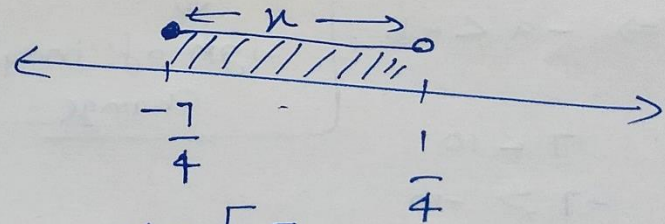 x
-7/4 1/4
[